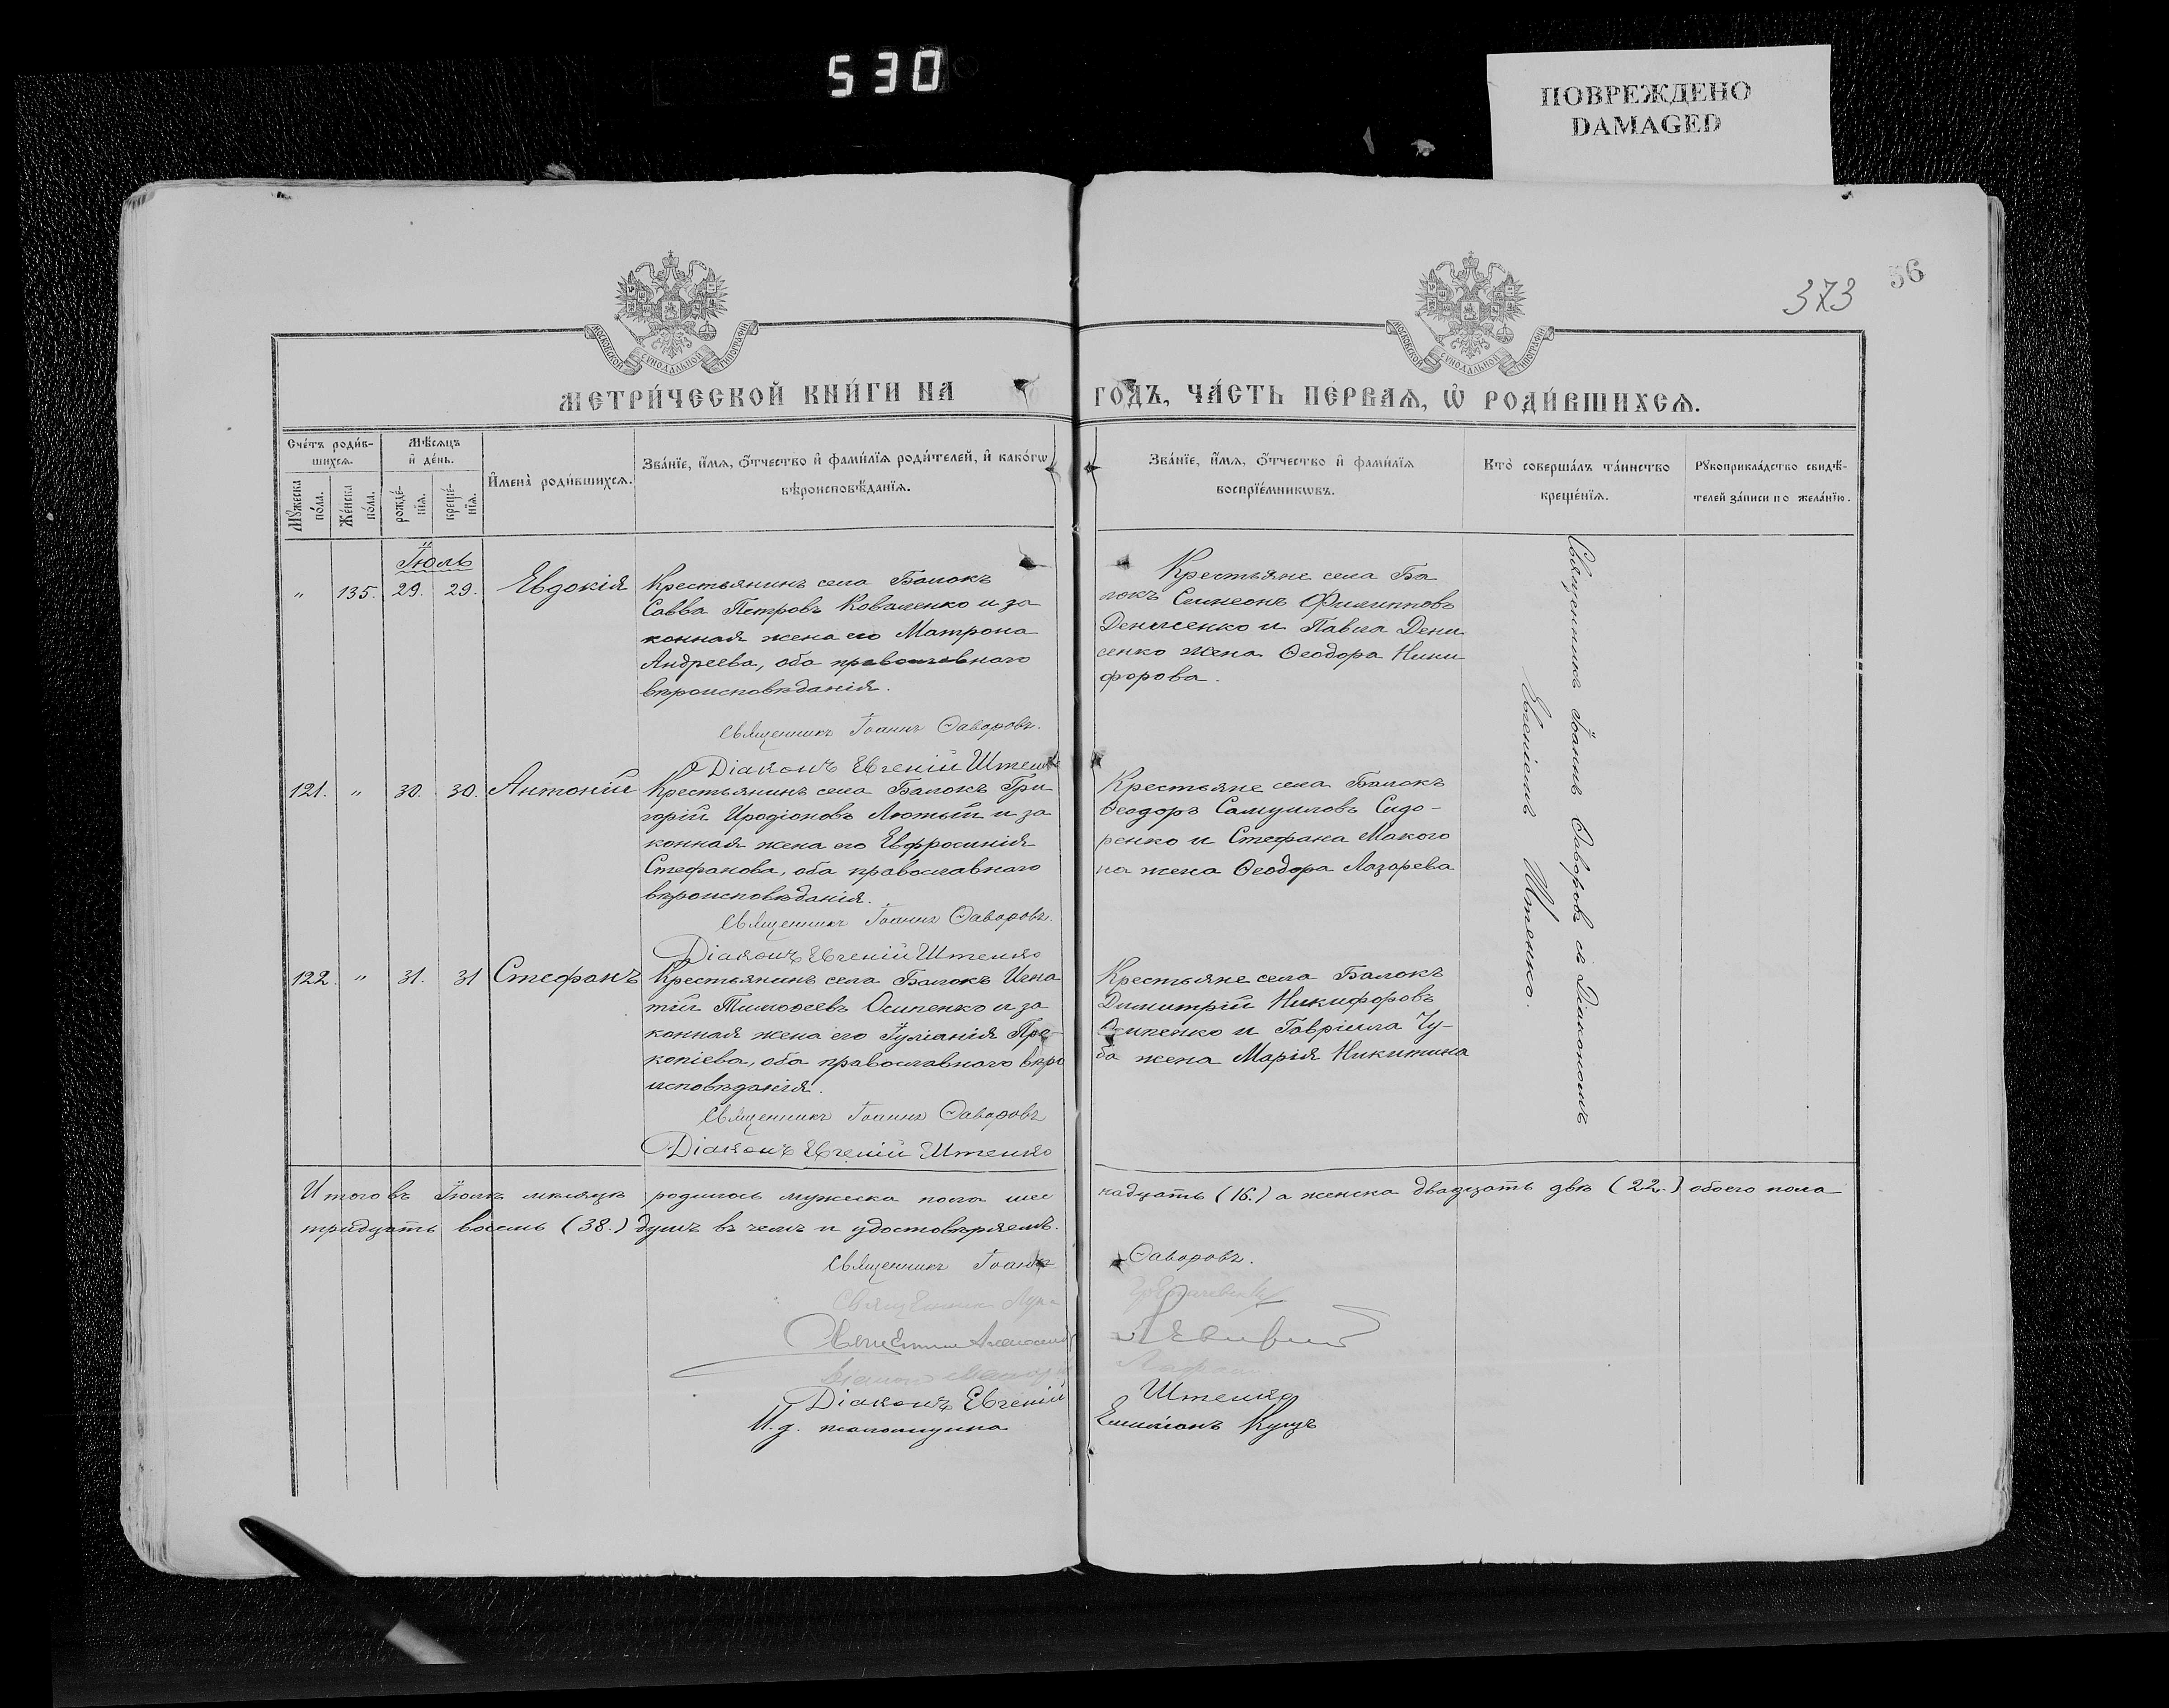 530
ПОВРЕЖДЕНО
DAMAGED
56
373
МОСКОВСКОЙ СѴНОДАЛЬНОЙ ТИПОГРАФІИ
МОСКОВСКОЙ СѴНОДАЛЬНОЙ ТИПОГРАФІИ
МЕТРИ́ЧЕСКОЙ КНИ́ГИ НА ГОДЪ, ЧА́СТЬ ПЕ́РВАѦ, Ѽ РОДИ́ВШИХСѦ.
Сче́тъ роди́в-
шихсѧ.
Мѣ́сѧцъ
и҆ де́нь.
Мꙋ́жеска
по́ла.
Же́нска
по́ла.
рожде́-
нїѧ.
креще́-
нїѧ.
И҆мена̀ роди́вшихсѧ.
Зва́нїе, и҆́мѧ, ѻ҆́тчество и҆ фами́лїѧ роди́телей, и҆ како́гѡ
вѣроисповѣ́данїѧ.
Зва́нїе, и҆́мѧ, ѻ҆́тчество и҆ фами́лїѧ
воспрїе́мникѡвъ.
Кто̀ соверша́лъ та́инство
креще́нїѧ.
Рꙋкоприкла́дство свидѣ́-
телей за́писи по жела́нїю.
Іюль
" 135. 29. 29. Евдокія
Крестьянинъ села Балокъ
Савва Петровъ Коваленко и за
конная жена его Матрона
Андреева, оба православного
вѣроисповѣданія.
Священникъ Іоаннъ Ѳаворовъ.
Діаконъ Евгеній Штенко
Крестьяне села Ба
локъ Симеонъ Филипповъ
Денисенко и Павла Дени
сенко жена Ѳеодора Ники
форова.
Священникъ Іоаннъ Ѳаворовъ съ Діакономъ
Евгеніемъ Штенко.
121. " 30. 30. Антоній
Крестьянинъ села Балокъ Гри
горій Иродіоновъ Лютый и за
конная жена его Евфросинія
Стефанова, оба православного
вѣроисповѣданія.
Священникъ Іоаннъ Ѳаворовъ.
Діаконъ Евгеній Штенко
Крестьяне села Балокъ
Ѳеодоръ Самуиловъ Сидо-
ренко и Стефана Макого
на жена Ѳеодора Лазарева
122. " 31. 31 Стефанъ
Крестьянинъ села Балокъ Игна
тій Тимоѳеевъ Осипенко и за
конная жена его Іуліанія Про-
копіева, оба православного вѣро
исповѣданія.
Священникъ Іоаннъ Ѳаворовъ
Діаконъ Евгеній Штенко
Крестьяне села Балокъ
Димитрій Никифоровъ
Осипенко и Гавріила Чу-
ба жена Марія Никитина
Итого въ Іюлѣ мѣсяцѣ родилось мужеска пола шес надцать (16.) а женска двадцать двѣ (22.) обоего пола
тридцать восемь (38.) душъ въ чемъ и удостовѣряемъ.
Священникъ Іоаннъ Ѳаворовъ.
Священникъ Лука
Священникъ Александръ
Діаконъ
Діаконъ Евгеній Штенко
И. д. псаломщика Емиліанъ Куцъ